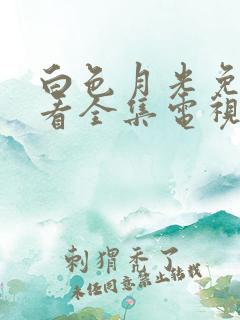 白色月光免
看全集電視
刺猬禿了
未经同意禁止转载